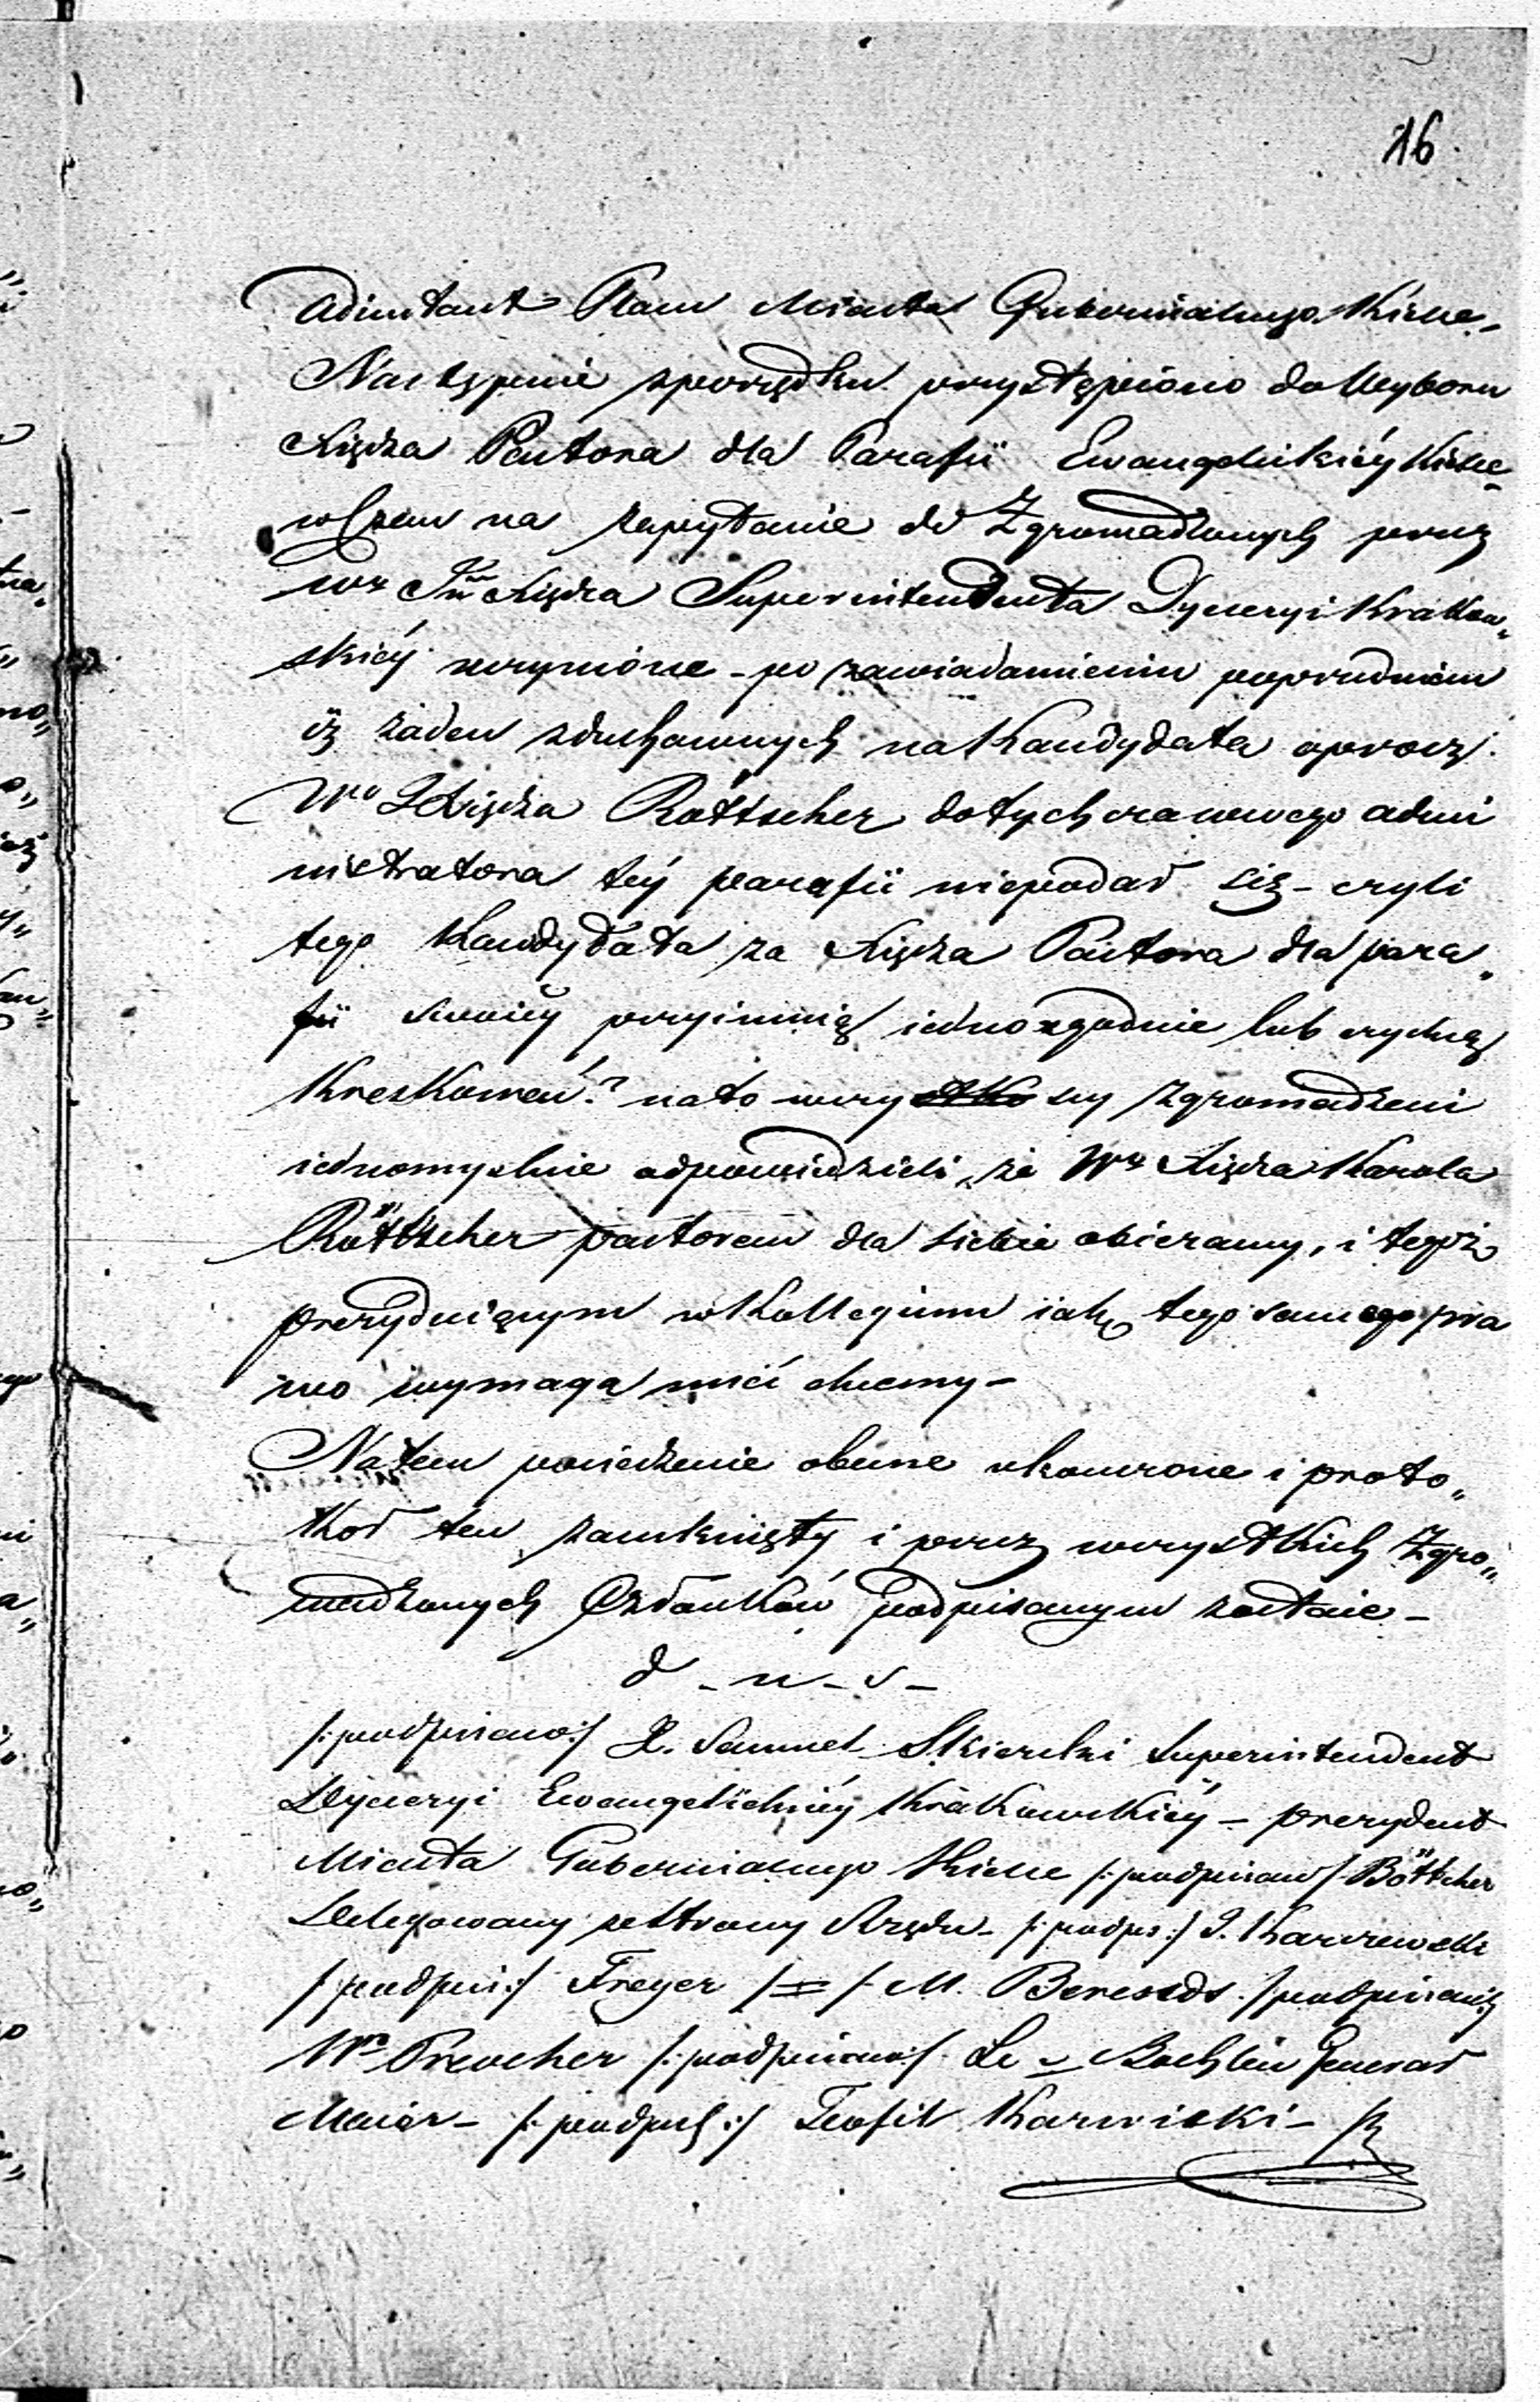 16
Adiutant Placu Miasta Gubernialnego Kielce_
Następnie zporządku przystąpiono do Wyboru
Xiędza Pastora dla Parafii Ewangelickiéy Kielec_
na zapytanie do Zgromadzonych przez
Xiędza Superintendenta Dyecezyi Krakow„
skiéy uczynione – po zawiadomieniu poprzedniem
iż żaden z duchownych na Kandydata oprócz
Wo Xiędza Röttscher dotychczasowego admi
nistratora téy parafii niepodał się – czyli
tego Kandydata za Xiędza Pastora dla para„
fii swoiéy przyimuią iednozgodnie lub życzą
Kreskować? na to wszyscy zgromadzeni
iednomyślnie odpowiedzieli, że Wo Xiędza Karola
Röttscher pastorem dla siebie obieramy, i tegoż
prezyduiącym w Kollegium iak tego samego pra
wo wymaga mieć chcemy –
Na tem posiedzenie obecne ukończone i proto„
kół ten zamknięty i przez wszystkich Zgro„
madzonych Członków podpisanym zostaie –
d – u – s –
/:podpisano:/ X. Samuel Skierski Superintendent
Dyecezyi Ewangelickiéy Krakowskiéy – prezydent
Miasta Gubernialnego Kielce /:podpisano/ Böttcher
Delegowany ze strony Rządu – /:podpis:/ J. Karczewski
/podpis:/ Freyer /=/ M. /podpisany
/:podpisano:/ Generał
Maior – /:podpis:/ Teofil Karwicki –